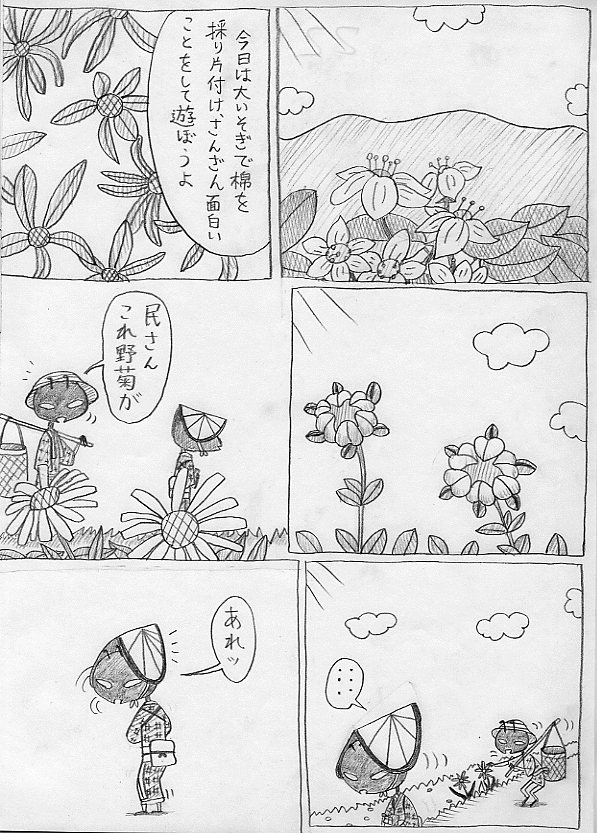 今日は大いそぎで棉を
採り片付け、さんざん面白い
ことをして遊ぼうよ
民さん
これ野菊が
……
あれッ